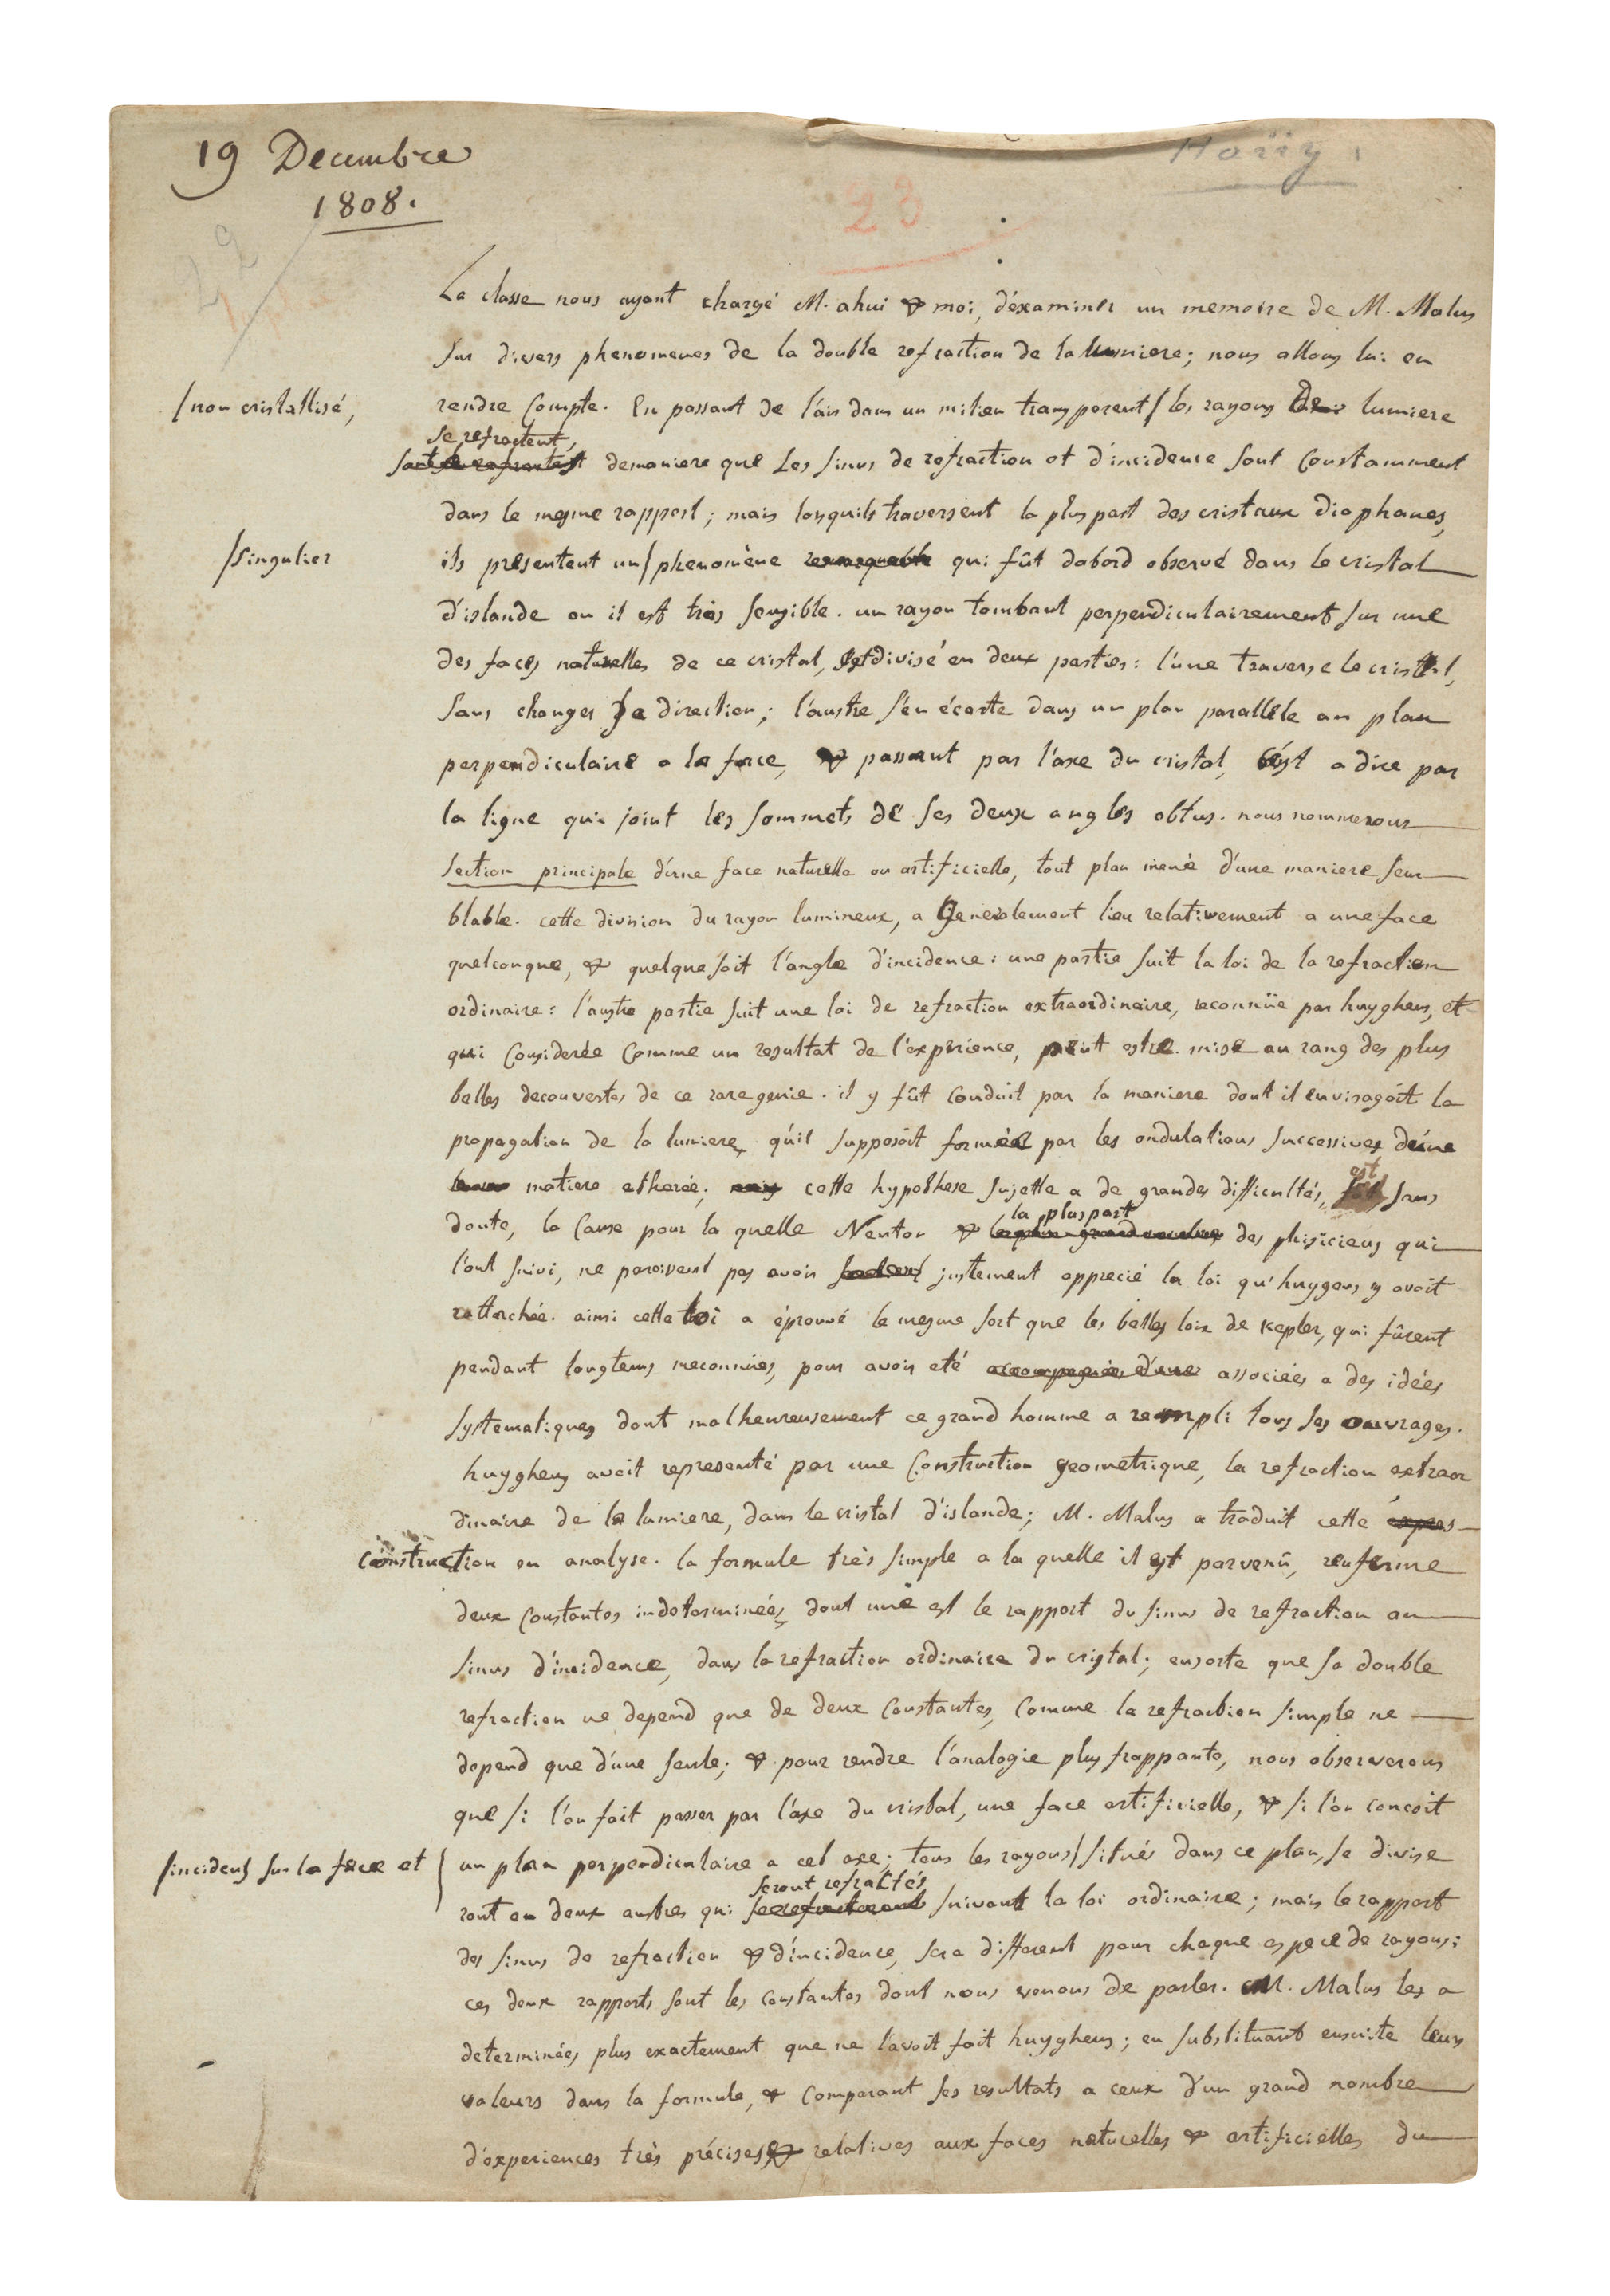 19 Decembre
1808.
Haüy
23
22
La classe nous ayant chargé M. ahui & moi, d'examiner un memoire de M. Malus
sur divers phenomenes de la double refraction de la lumiere; nous allons lui en
/non cristallisé,
rendre Compte. En passant de l'air dans un milieu transparent/ les rayons de lumiere
se refractent,
demaniere que Les sinus de refraction et d'incidence sont Constamment
dans le mesme rapport; mais lorsquils traversent la plus part des cristaux diaphanes,
/singulier
ils presentent un/ phenomène remarquable qui fût dabord observé dans le cristal
d'islande ou il est très sensible. un rayon tombant perpendiculairement sur une
des faces naturelles de ce cristal, est divisé en deux parties: l'une traverse le cristal,
sans changer de direction; l'austre s'en écarte dans un plan parallele au plan
perpendiculaire a la face, & passant par l'axe du cristal, c'est a dire par
la ligne qui joint les sommets de ses deux angles obtus. nous nommerons
section principale d'une face naturelle ou artificielle, tout plan mené d'une maniere sem
blable. cette division du rayon lumineux, a Generalement lieu relativement a une face
quelconque, & quelque soit l'angle d'incidence: une partie suit la loi de la refraction
ordinaire: l'austre partie suit une loi de refraction extraordinaire, reconnüe par huyghens, et
qui Considerée Comme un resultat de l'experience, peut estre mise au rang des plus
belles decouvertes de ce rare genie. il y fût Conduit par la maniere dont il envisagoit la
propagation de la lumiere, qu'il supposoit formée par les ondulations successives d'une
matiere etherée; mais cette hypothese sujette a de grandes difficultés, est sans
la plus part
doute, la Cause pour la quelle Neuton & le plus grand nombre des phisiciens qui
l'ont suivi, ne paroissent pas avoir justement apprecié la loi qu'huygens y avoit
rattachée. ainsi cette loi a éprouvé le mesme sort que les belles loix de Kepler, qui fûrent
pendant longtems meconnües, pour avoir eté accompagnées d'une associées a des idées
systematiques dont malheureusement ce grand homme a rempli tous ses ouvrages.
huyghens avoit representé par une Construction geometrique, la refraction extraor
dinaire de la lumiere, dans le cristal d'islande; M. Malus a traduit cette expres
Construction en analyse. la formule très simple a la quelle il est parvenû, renferme
deux Constantes indeterminées, dont une est le rapport du sinus de refraction au
sinus d'incidence, dans la refraction ordinaire du cristal; ensorte que sa double
refraction ne depend que de deux Constantes, Comme la refraction simple ne
depend que d'une seule; & pour rendre l'analogie plus frappante, nous observerons
que si l'on fait passer par l'axe du cristal, une face artificielle, & si l'on concoit
/incidens sur la face et
un plan perpendiculaire a cet axe; tous les rayons/ situés dans ce plan, se divise
seront refractés
ront en deux austres qui se refracteront suivant la loi ordinaire; mais le rapport
des sinus de refraction & d'incidence, sera different pour chaque espece de rayons:
ces deux rapports sont les Constantes dont nous venons de parler. M. Malus les a
determinées plus exactement que ne l'avoit fait huyghens; en substituant ensuite leurs
valeurs dans la formule, & Comparant ses resultats a ceux d'un grand nombre
d'experiences très précises, & relatives aux faces naturelles & artificielles du